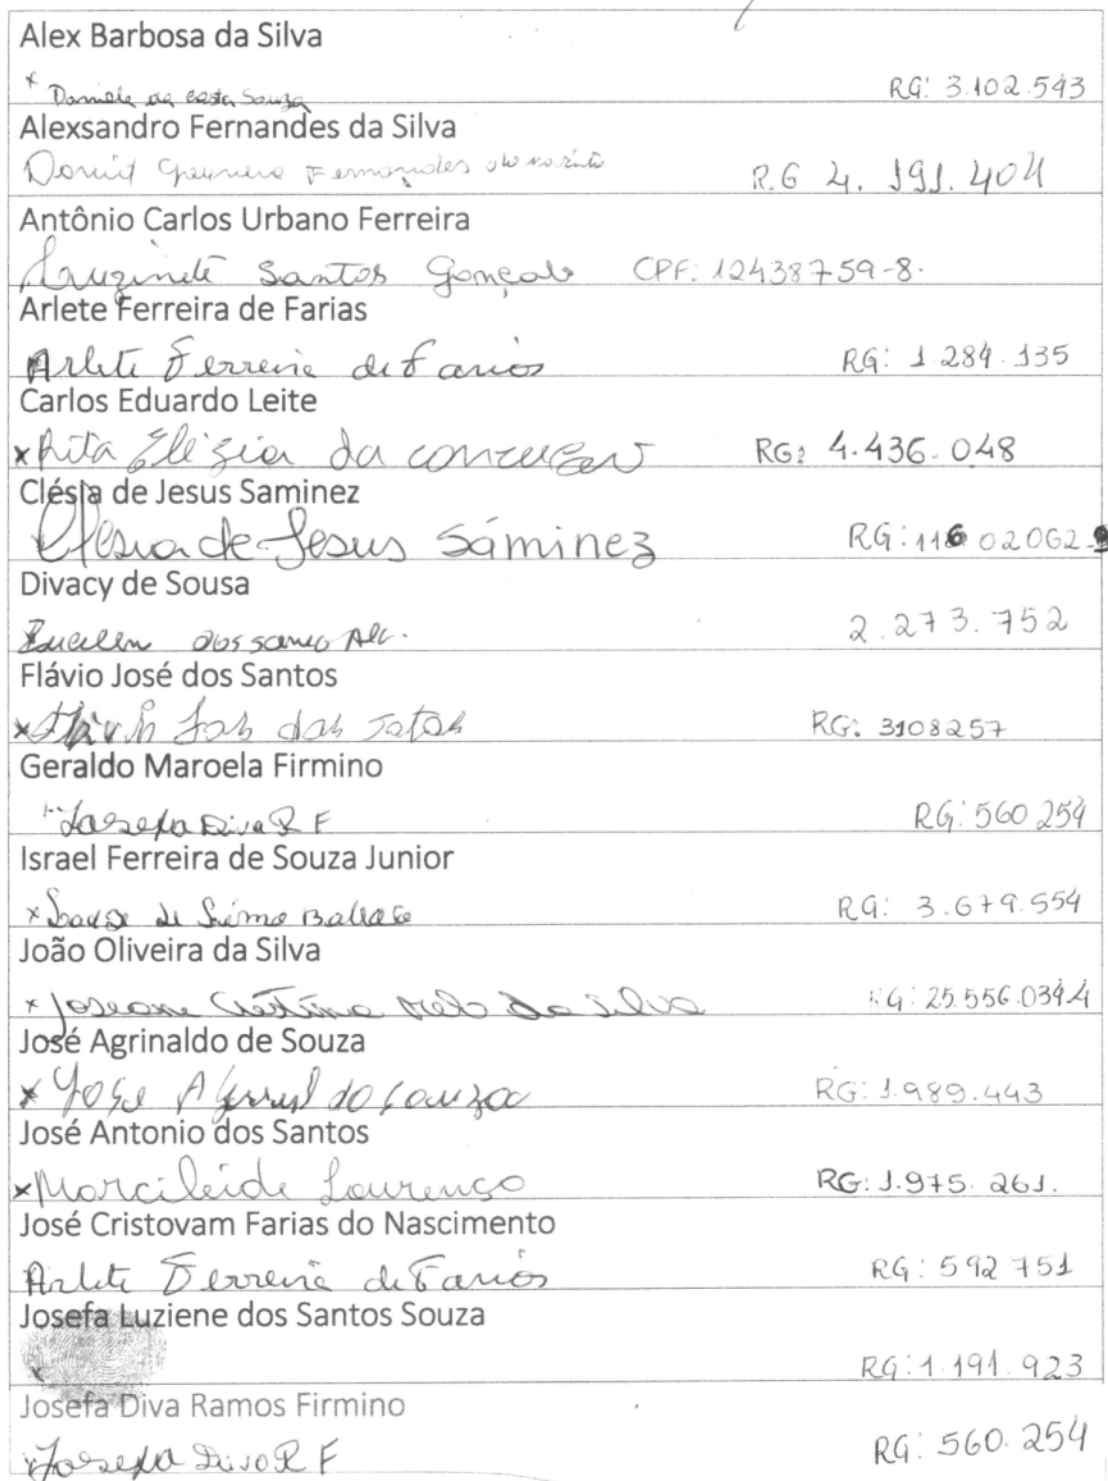 Alex Barbosa da Silva
x Daniele da costa Souza RG: 3.102.543
Alexsandro Fernandes da Silva
Fernandes R.G 4. 191. 404
Antônio Carlos Urbano Ferreira
Luzinete Santos Gonçalo CPF: 12438759-8.
Arlete Ferreira de Farias
Arlete Ferreira de Farias RG: 1.284.135
Carlos Eduardo Leite
x Rita Elizia da RG: 4.436.048
Clésia de Jesus Saminez
Clesia de Jesus Sáminez RG: 116 02062-9
Divacy de Sousa
2.273.752
Flávio José dos Santos
x RG: 3108257
Geraldo Maroela Firmino
Josefa Diva R F RG: 560 254
Israel Ferreira de Souza Junior
x de RG: 3.679.554
João Oliveira da Silva
x Joseane Cristina Melo da Silva RG: 25.556.039.4
José Agrinaldo de Souza
x Jose do Souza RG: 1.989.443
José Antonio dos Santos
x Marcileide Lourenço RG: 1.975.261.
José Cristovam Farias do Nascimento
Arlete Ferreira de Farias RG: 592 751
Josefa Luziene dos Santos Souza
x RG: 1.191.923
Josefa Diva Ramos Firmino
x Josefa Diva R F RG: 560.254